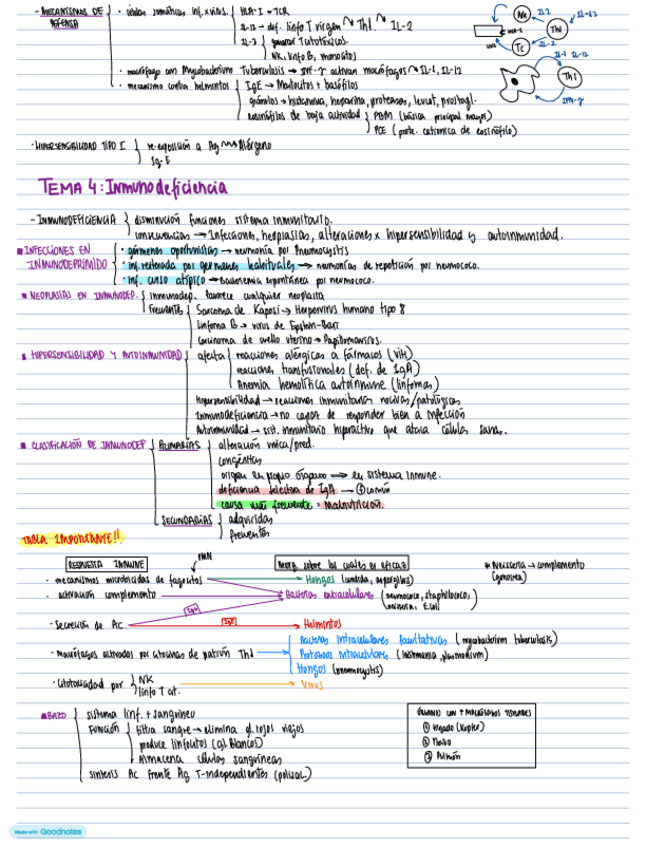 - MECANISMOS DE DEFENSA
· células somáticas inf. x virus
HLA-I - TCR
IL-12 → def. linfo T virgen Th1. IL-2
IL-2 generar T citotóxicos.
NK, linfo B, monocitos
· macrófago con Mycobacterium Tuberculosis → IFN-γ activan macrófagos IL-1, IL-12
· mecanismo contra helmintos
IgE → Mastocitos + basófilos
gránulos → histamina, heparina, proteasas, leucot, prostagl.
eosinófilos de baja actividad
PBM (básica principal mayor)
PCE (prote. cationica de eosinófilo)
NK
IL2
IL-12
Th1
Tc
IL-2
IL-1 IL-12
Th1
IFN-γ
· HIPERSENSIBILIDAD TIPO I
re-exposición a Ag Alérgeno
Ig-E
TEMA 4: Inmunodeficiencia
- INMUNODEFICIENCIA
disminución funciones sistema inmunitario.
consecuencias → Infecciones, neoplasias, alteraciones x hipersensibilidad y autoinmunidad.
INFECCIONES EN INMUNODEPRIMIDO
· gérmenes oportunistas → neumonía por Pneumocystis
· inf. reiterada por gérmenes habituales → neumonías de repetición por neumococo.
· inf. curso atípico → Bacteriemia espontánea por neumococo.
NEOPLASIAS EN INMUNODEP.
inmunodep. favorece cualquier neoplasia
Frecuentes
Sarcoma de Kaposi → Herpesvirus humano tipo 8
Linfoma B → virus de Epstein-Barr
Carcinoma de cuello uterino → Papilomavirus.
HIPERSENSIBILIDAD Y AUTOINMUNIDAD
afecta
reacciones alérgicas a fármacos (VIH)
reacciones transfusionales (def. de IgA)
Anemia hemolítica autoinmune (linfomas)
Hipersensibilidad → reacciones inmunitarias nocivas/patológicas
Inmunodeficiencia → no capaz de responder bien a infección
Autoinmunidad → sist. inmunitario hiperactivo que ataca células sanas.
CLASIFICACIÓN DE INMUNODEP
PRIMARIAS
alteración única/pred.
congénitas
origen en propio órgano → en sistema inmune.
deficiencia selectiva de IgA → + común
causa más frecuente = Malnutrición.
SECUNDARIAS
adquiridas
frecuentes
TABLA IMPORTANTE!!
PMN
RESPUESTA INMUNE
Microorg. sobre los cuales es eficaz
* Neisseria → complemento (gonorrea)
· mecanismos microbicidas de fagocitos
Hongos (candida, aspergillus)
· activación complemento
Bacterias extracelulares (neumococo, staphilococo, neisseria, E.coli)
IgM
· Secreción de Ac.
IgE
Helmintos
· Macrófagos activados por citocinas de patrón Th1
Bacterias intracelulares facultativas (mycobacterium tuberculosis)
Protozoos intracelulares (leishmania, plasmodium)
Hongos (pneumocystis)
· Citotoxicidad por
NK
linfo T cit.
Virus
BAZO
sistema linf. + sanguíneo
Función
filtra sangre → elimina gl. rojos viejos
produce linfocitos (gl. blancos)
Almacena células sanguíneas
síntesis Ac frente Ag T-independientes (polisac.)
ÓRGANOS CON + MACRÓFAGOS TISULARES
① Hígado (Kupfer)
② Bazo
③ Pulmón
Made with Goodnotes